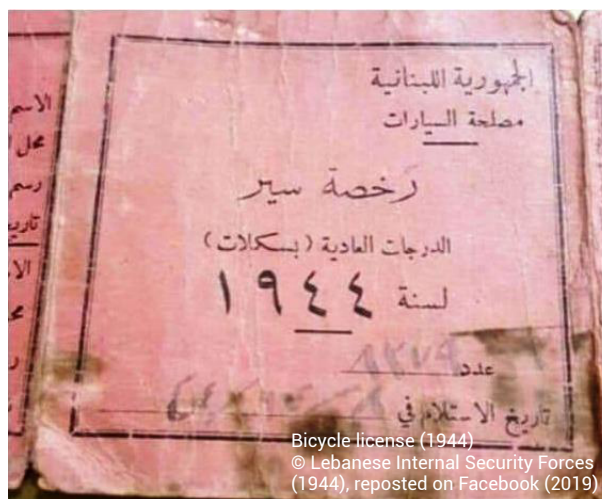 الجمهورية اللبنانية
مصلحة السيارات
رخصة سير
الدرجات العادية (بسكلات)
لسنة ١٩٤٤
عدد
تاريخ الاستلام في
الاسم
محل
رسم
Bicycle license (1944)
© Lebanese Internal Security Forces
(1944), reposted on Facebook (2019)